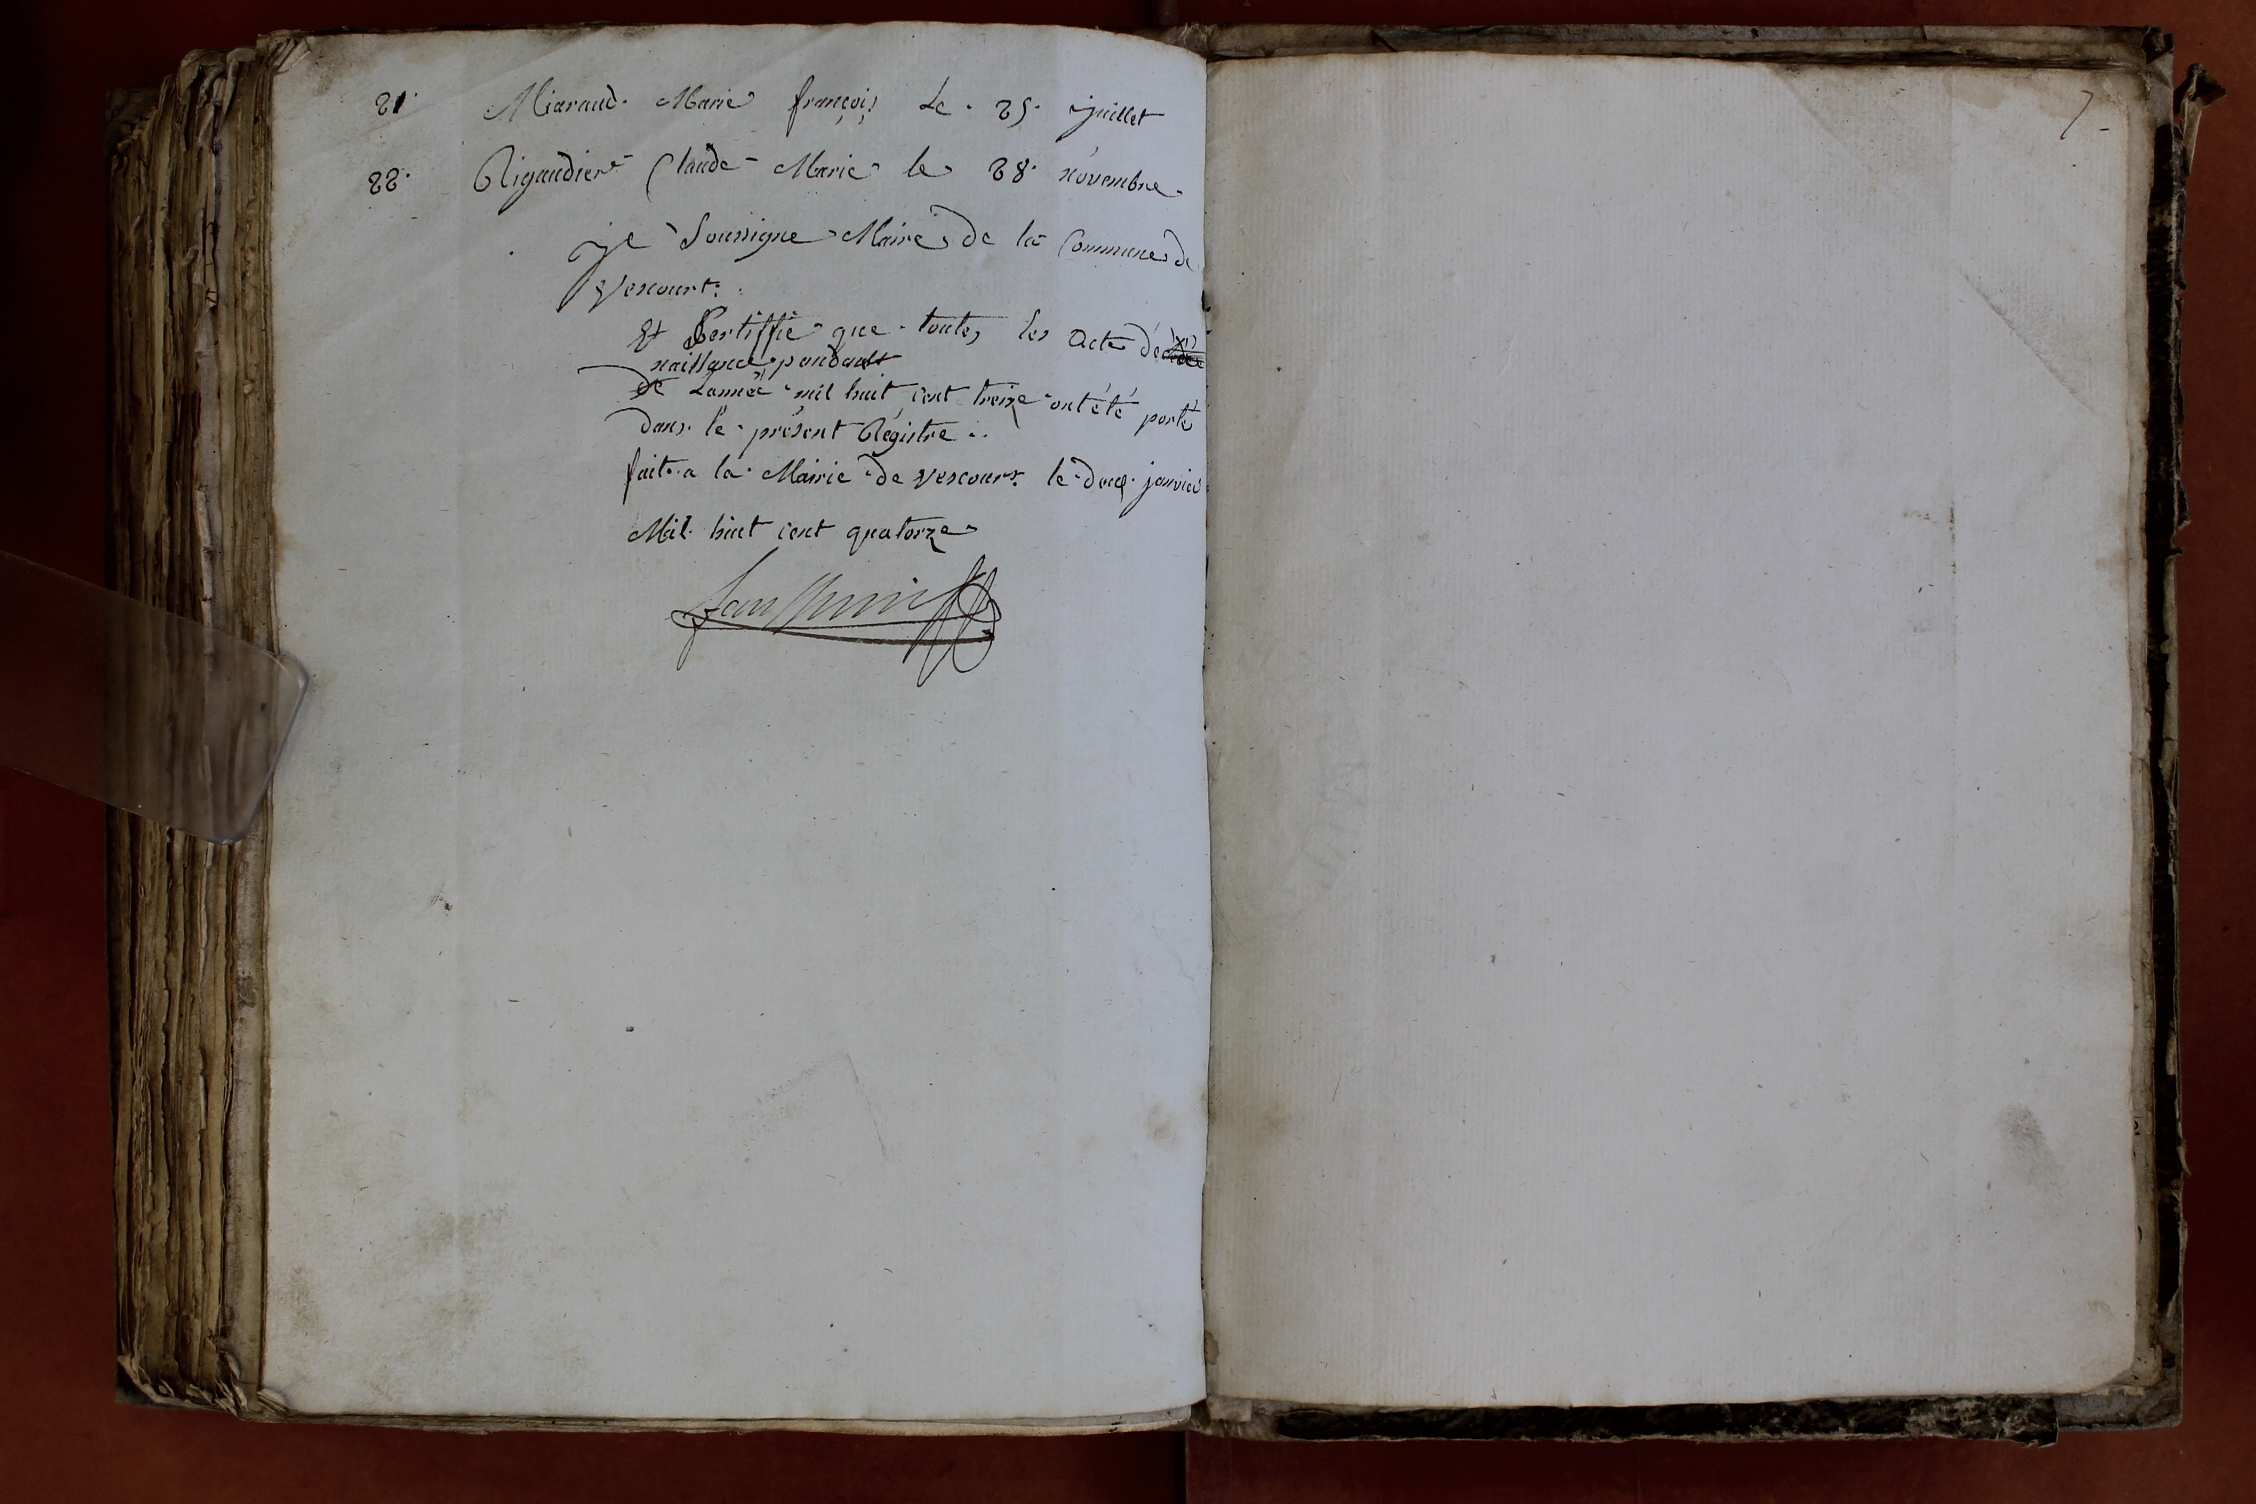 21. Miaraud. Marie françois Le. 25. juillet
22. Rigaudier Claude Marie le 28. novembre.
je Soussigne Maire de la Commune de
Vescourt.
Et Certiffie que toutes les Acte de
naissance pendant
de Lannéé mil huit cent treize ont été porté
dans le présent Régistre..
fait a la Mairie de vescours. le deux janvier
Mil huit cent quatorze
7